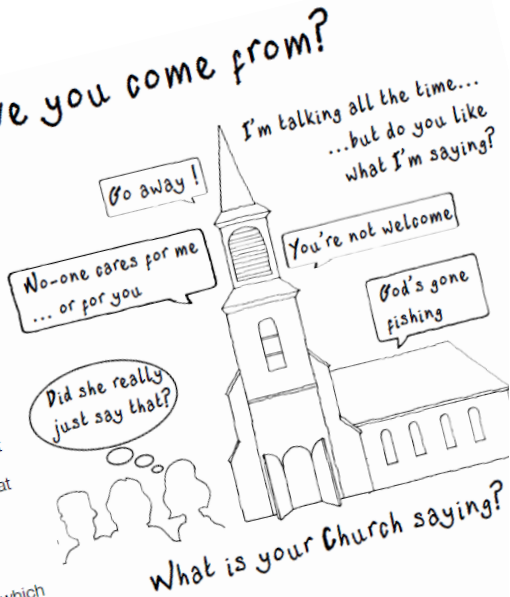 you come from?
I'm talking all the time...
...but do you like
what I'm saying?
Go away !
You're not welcome
No-one cares for me
... or for you
God's gone
fishing
Did she really
just say that?
What is your Church saying?
which